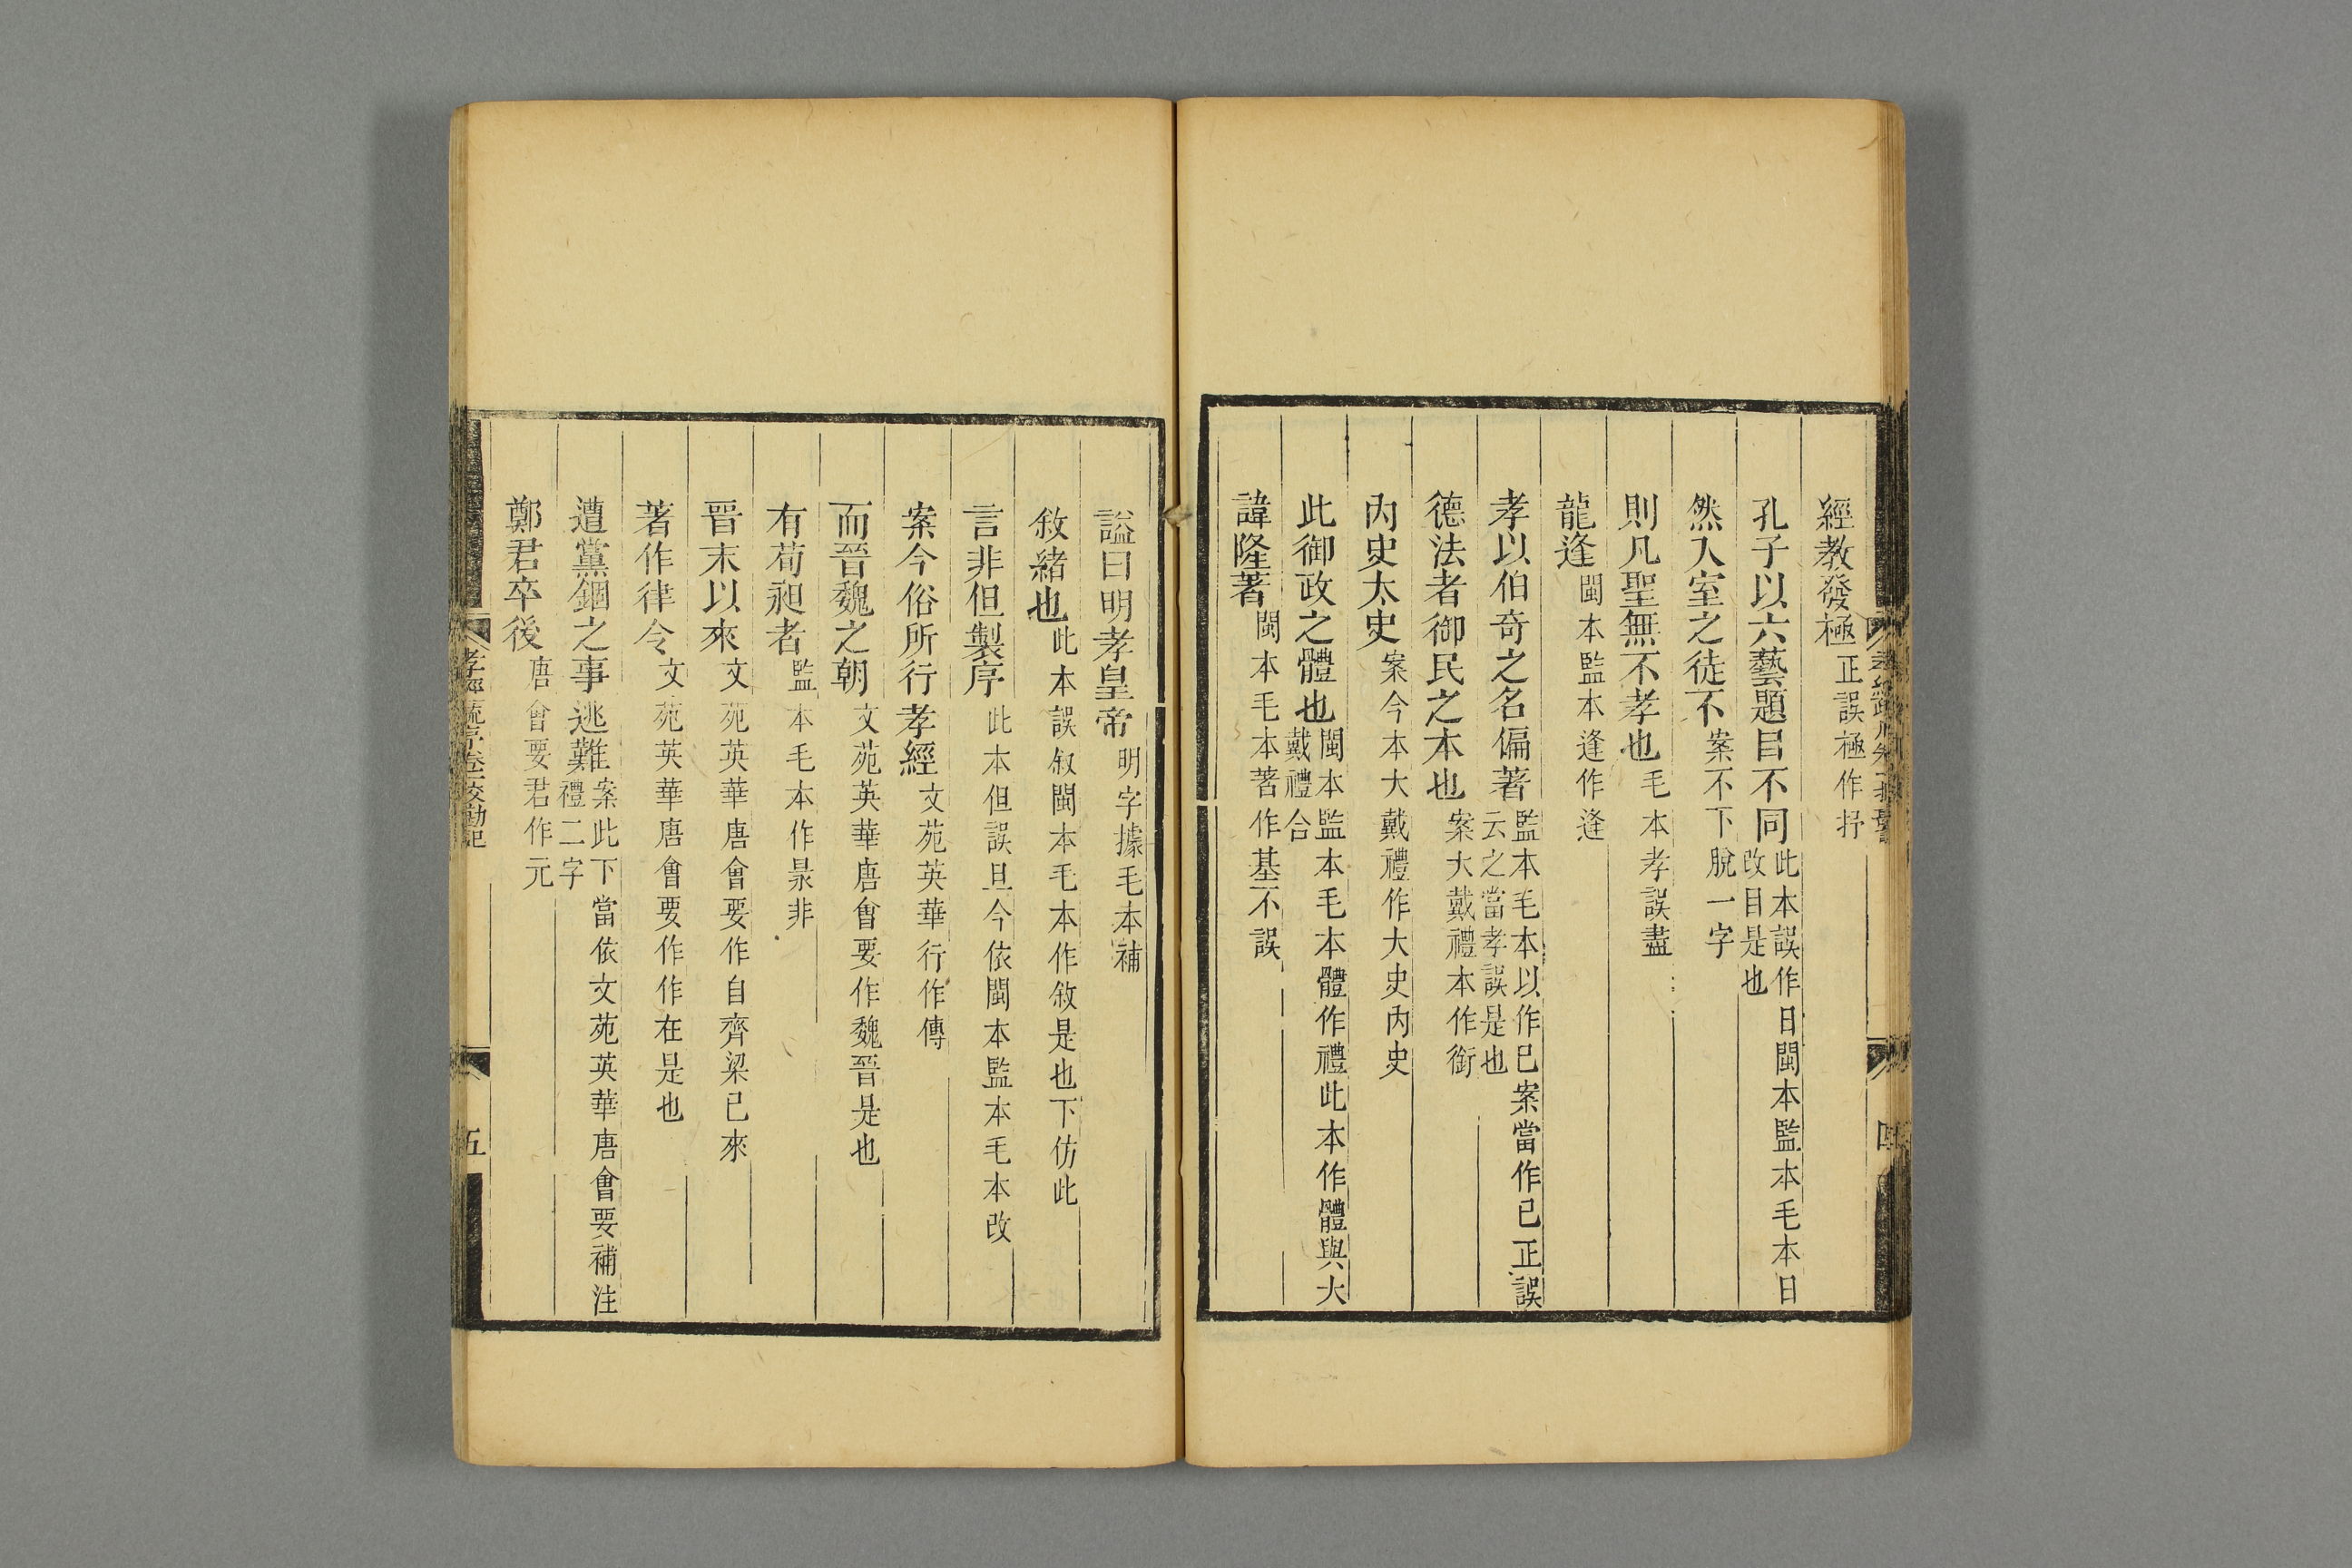 經教發極正誤極作抒
孔子以六藝題目不同此本誤作日閩本監本毛本日改目是也
然入室之徒不案不下脫一字
則凡聖無不孝也毛本孝誤盡
龍逢閩本監本逢作逄
孝以伯奇之名偏著監本毛本以作已案當作已正誤云之當孝誤是也
德法者御民之本也案大戴禮本作銜
內史太史案今本大戴禮作大史內史
此御政之體也閩本監本毛本體作禮此本作體與大戴禮合
諱隆著閩本毛本著作基不誤
謚曰明孝皇帝明字據毛本補
敘緒也此本誤叙閩本毛本作敘是也下仿此
言非但製序此本但誤且今依閩本監本毛本改
案今俗所行孝經文苑英華行作傳
而晉魏之朝文苑英華唐會要作魏晉是也
有荀昶者監本毛本作㫤非
晉末以來文苑英華唐會要作自齊梁已來
著作律令文苑英華唐會要作作在是也
遭黨錮之事逃難案此下當依文苑英華唐會要補注禮二字
鄭君卒後唐會要君作元
孝經疏序卷校勘記
五